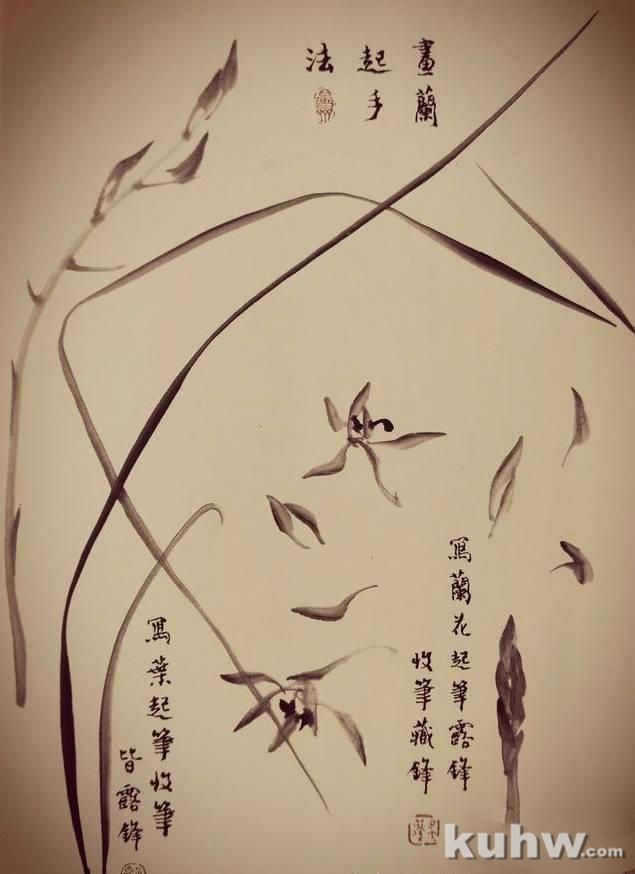 畫蘭
起手
法
寫蘭花起筆露鋒
收筆藏鋒
寫葉起筆收筆
皆露鋒
kuhw.com